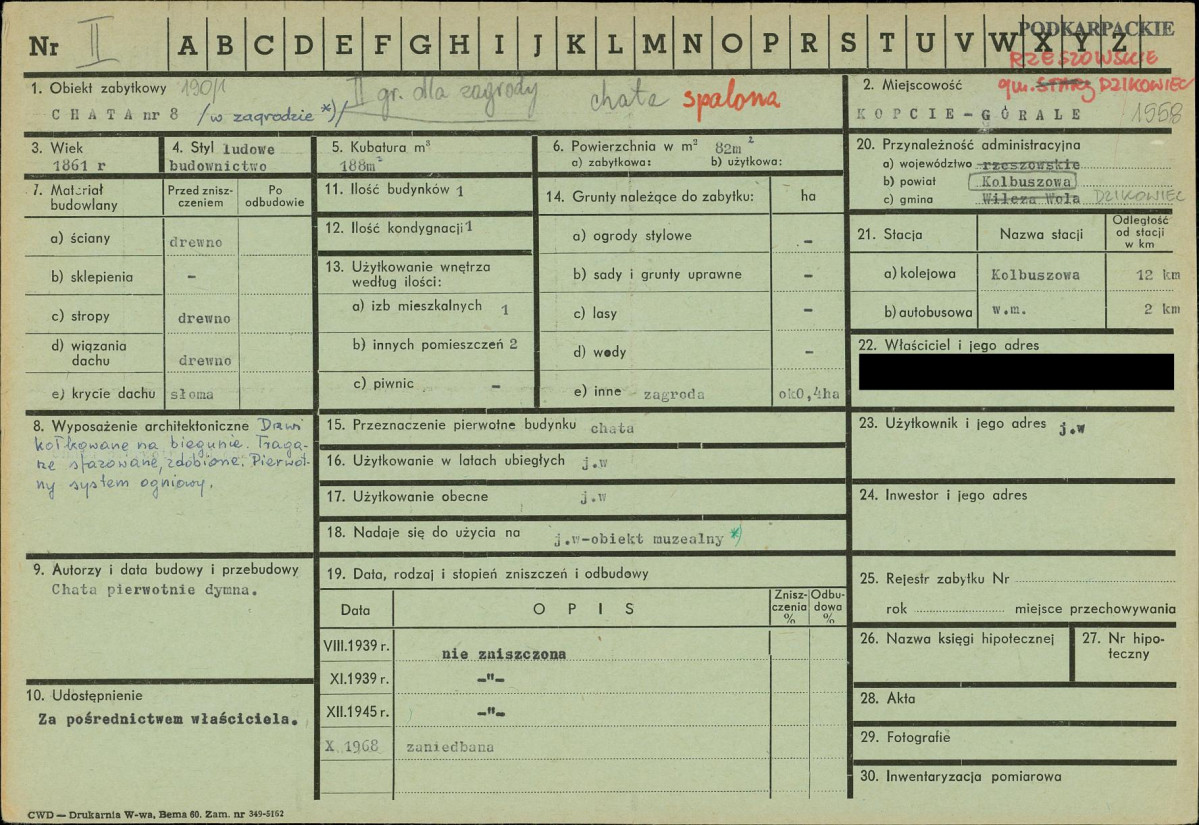 Nr II A B C D E F G H I J K L M N O P R S T U V W X Y Z
PODKARPACKIE
RZESZOWSKIE
gm. STARY DZIKOWIEC
1. Obiekt zabytkowy 190/1
CHATA nr 8 /w zagrodzie *)/
II gr. dla zagrody
chata spalona
2. Miejscowość
KOPCIE-GÓRALE 1958
3. Wiek
1861 r
4. Styl ludowe
budownictwo
5. Kubatura m³
188m²
6. Powierzchnia w m² 82m²
a) zabytkowa: b) użytkowa:
7. Materiał
budowlany
Przed znisz-
czeniem
Po
odbudowie
a) ściany drewno
b) sklepienia -
c) stropy drewno
d) wiązania
dachu drewno
e) krycie dachu słoma
11. Ilość budynków 1
12. Ilość kondygnacji 1
13. Użytkowanie wnętrza
według ilości:
a) izb mieszkalnych 1
b) innych pomieszczeń 2
c) piwnic -
14. Grunty należące do zabytku: ha
a) ogrody stylowe -
b) sady i grunty uprawne -
c) lasy -
d) wody -
e) inne zagroda ok0,4ha
20. Przynależność administracyjna
a) województwo rzeszowskie
b) powiat Kolbuszowa
c) gmina Wilcza Wola DZIKOWIEC
21. Stacja Nazwa stacji
Odległość
od stacji
w km
a) kolejowa Kolbuszowa 12 km
b) autobusowa w.m. 2 km
22. Właściciel i jego adres
8. Wyposażenie architektoniczne Drzwi
kołkowane na biegunie. Traga-
rze sfazowane, zdobione. Pierwot-
ny system ogniowy.
15. Przeznaczenie pierwotne budynku chata
16. Użytkowanie w latach ubiegłych j.w
17. Użytkowanie obecne j.w
18. Nadaje się do użycia na j.w-obiekt muzealny *)
23. Użytkownik i jego adres j.w
24. Inwestor i jego adres
9. Autorzy i data budowy i przebudowy
Chata pierwotnie dymna.
19. Data, rodzaj i stopień zniszczeń i odbudowy
Data OPIS
Znisz-
czenia
%
Odbu-
dowa
%
VIII.1939 r. nie zniszczona
XI.1939 r. -"-
XII.1945 r. -"-
X 1968 zaniedbana
25. Rejestr zabytku Nr
rok miejsce przechowywania
26. Nazwa księgi hipotecznej
27. Nr hipo-
teczny
10. Udostępnienie
Za pośrednictwem właściciela.
28. Akta
29. Fotografie
30. Inwentaryzacja pomiarowa
CWD — Drukarnia W-wa, Bema 60. Zam. nr 349-5162